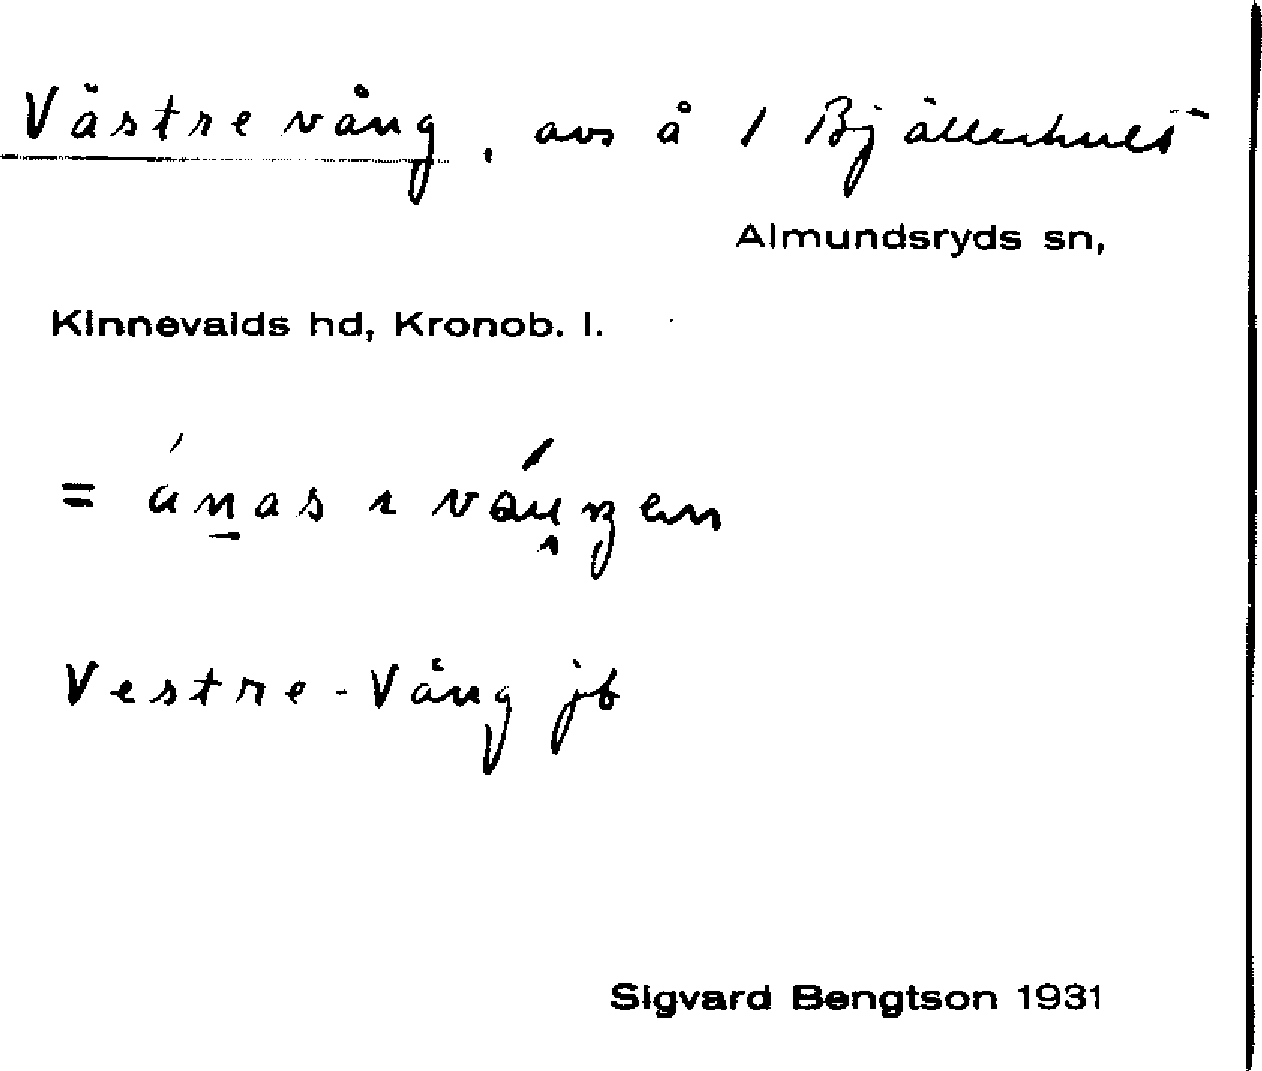 Västre vång, avs å 1 Bjällerhult
Almundsryds sn,
Kinnevalds hd, Kronob. l.
= ánas ɩ
Vestre-Vång jb
Sigvard Bengtson 1931